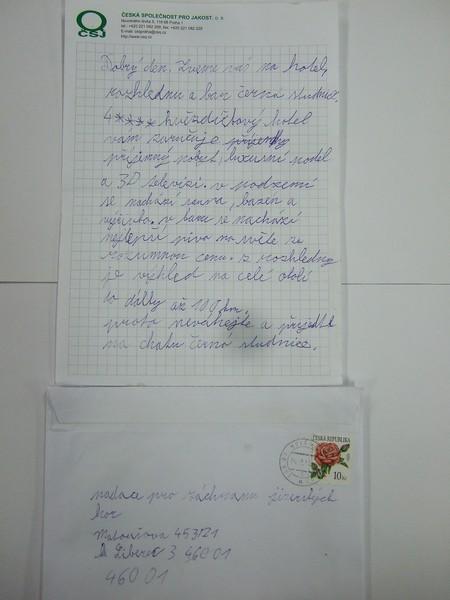 ČESKÁ SPOLEČNOST PRO JAKOST, O. S.
Novotného lávka 5, 116 68 Praha 1
http://www.csq.cz
ČSJ
Dobrý den, Zveme vás na hotel,
rozhlednu a bar černá studnice.
4**** hvězdičkový hotel
vám zaručuje
příjemný pobyt, luxusní
a 3D televizi. v podzemí
se nachází sauna, bazén a
v baru se nachází
nejlepší piva na světe za
rozumnou cenu. z rozhledny
je výhled na celé okolí
do dálky až 100 km.
proto neváhejte a přijeďte
na chatu černá studnice.
ČESKÁ REPUBLIKA
10 Kč
nadace pro záchranu jizerských
hor
453/21
Liberec 3 460 01
460 01